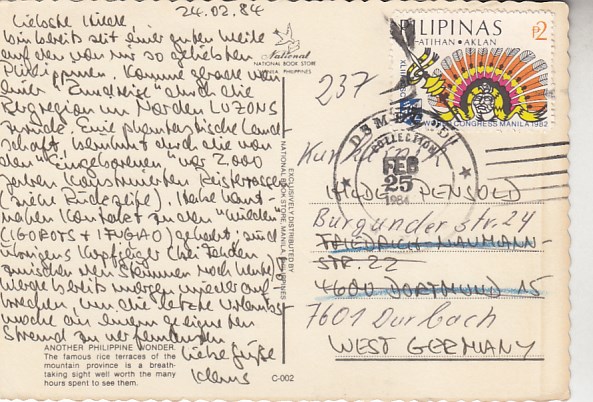 24.02.84
Liebste Hilde
bin bereits seit einer guten Weile
auf den von mir so geliebten
Philippinen. Komme gerade von
einer "Rundreise" durch die
Bergregion im Norden LUZONS
zurück. Eine phantastische Land-
schaft berühmt durch die von
den "Eingeborenen" vor 2.000
Jahren konstruierten Reisterrassen
(siehe Rückseite). Habe haut-
nahen Kontakt zu den "Wilden"
(IGOROTS + IFUGAO) gehabt; sind
übrigens Kopfjäger (bei Fehden
zwischen den Stämmen noch heute)
Werde bereits morgen wieder auf-
brechen, um die letzte Urlaubs-
woche an einem geeigneten
Strand zu verbringen
Liebe Grüße
Klaus
ANOTHER PHILIPPINE WONDER.
The famous rice terraces of the
mountain province is a breath-
taking sight well worth the many
hours spent to see them.
C-002
National
NATIONAL BOOK STORE
MANILA PHILIPPINES
EXCLUSIVELY DISTRIBUTED BY
NATIONAL BOOK STORE, MANILA, PHILIPPINES
237
PILIPINAS
P2
ATIHAN • AKLAN
CONGRESS MANILA 1982
COLLECTION
FEB
25
1984
HILDE PENSOLD
Burgunder Str. 24
FRIEDRICH-NAUMANN
STR. 22
4600 DORTMUND 15
7601 Durbach
WEST GERMANY